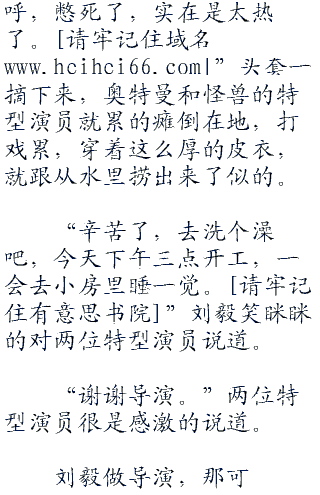 呼，憋死了，实在是太热
了。[请牢记住域名
www.hcihci66.com|”头套一
摘下来，奥特曼和怪兽的特
型演员就累的瘫倒在地，打
戏累，穿着这么厚的皮衣，
就跟从水里捞出来了似的。
“辛苦了，去洗个澡
吧，今天下午三点开工，一
会去小房里睡一觉。[请牢记
住有意思书院]”刘毅笑眯眯
的对两位特型演员说道。
“谢谢导演。”两位特
型演员很是感激的说道。
刘毅做导演，那可